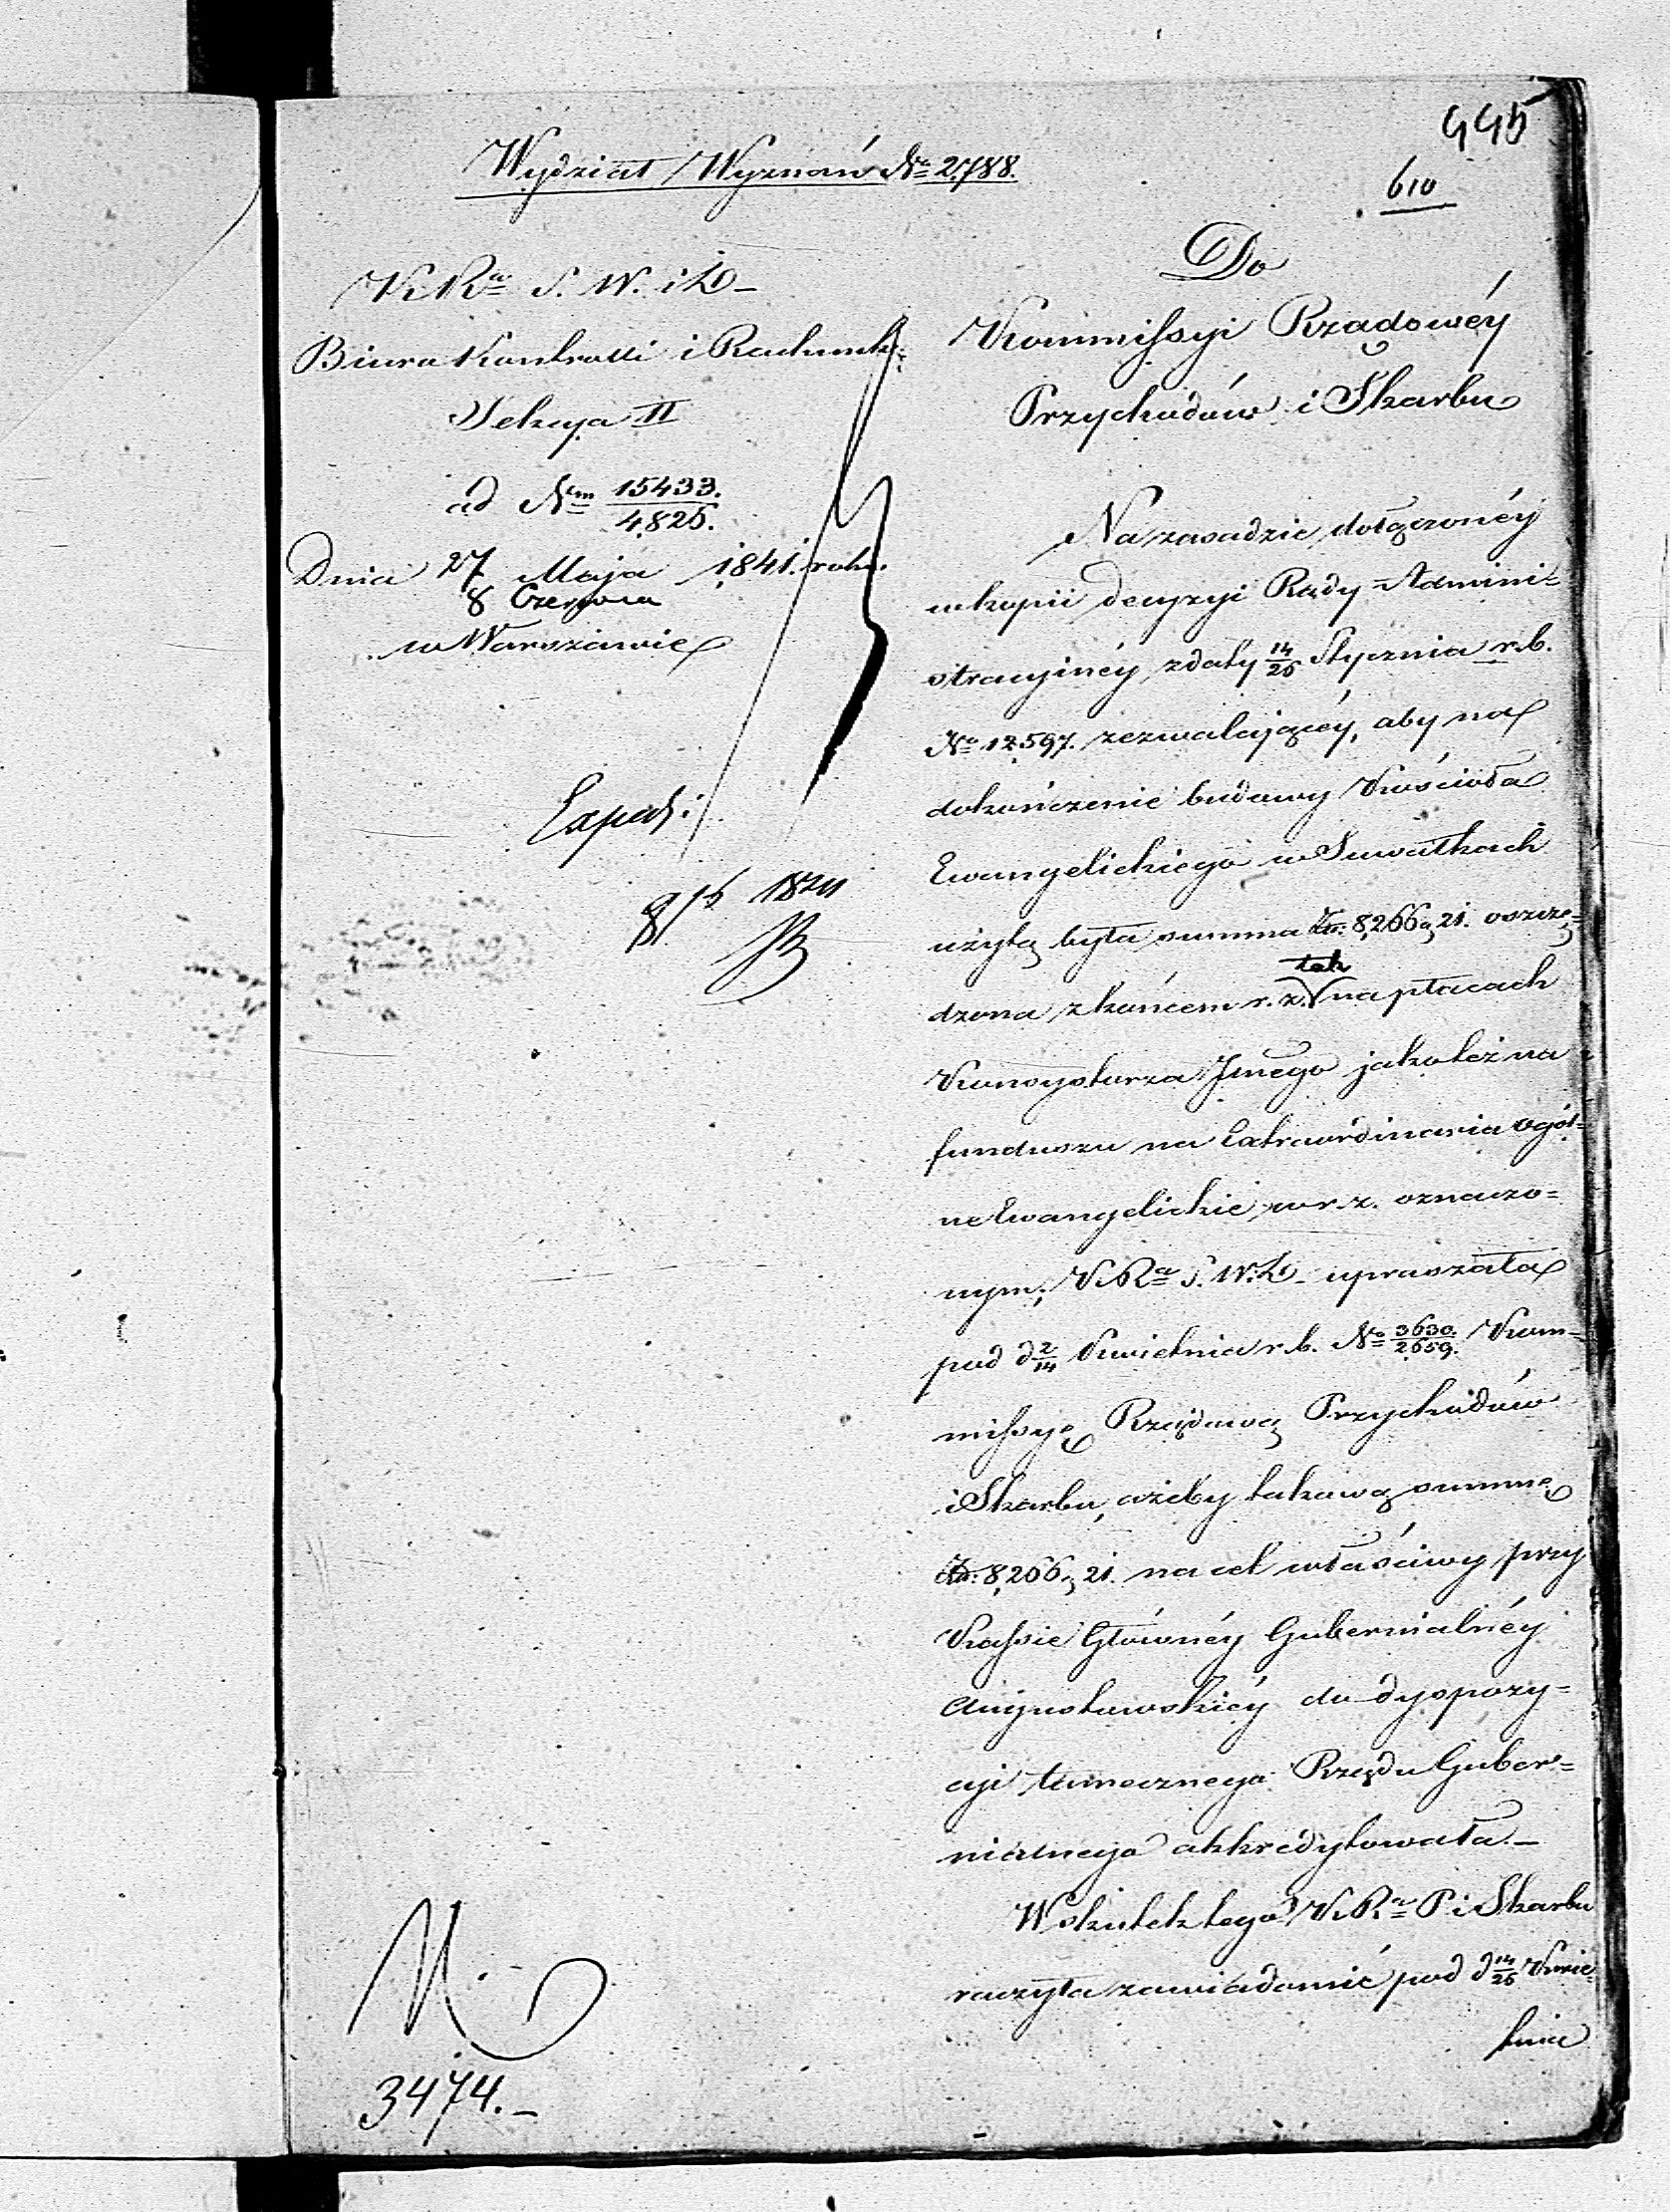 445
610
Wydział Wyznań № 2,788.
K. Rª S. W. i D –
Biuro Kontrolli i Rachunk:
Sekcya II
ad Nᵐ 15433./4825.
Dnia 27 Maja 1841. roku.
8 Czerwca
w Warszawie
Exped:
8/6 1841
Do
Kommissyi Rządowéy
Przychodów i Skarbu
Na zasadzie dołączonéy
w kopii decyzyi Rady Admini=
stracyinéy z daty 14/26 Stycznia r. b.
№ 12,597. zezwalającéy, aby na
dokończenie budowy Kościoła
Ewangelickiego w Suwałkach
użytą była summa Złp: 8,266 g 21. oszczę=
dzona z końcem r. z. tak na płacach
Konsystorza Jnego jako też na
funduszu na Extraordinaria ogól=
ne Ewangelickie w r. z. oznaczo=
nym; K. Rª S. W. D – upraszała
pod d 2/14 Kwietnia r. b. № 3630./2659. Kom=
missyę Rządową Przychodów
i Skarbu, ażeby takową summę
Złp: 8,266 g 21. na cel właściwy przy
Kassie Głównéy Gubernialnéy
Augustowskiéy do dyspozy=
cyi tamecznego Rządu Guber=
nialnego akkredytowała. –
W skutek tego K. Rª P. i Skarbu
raczyła zawiadomić pod d 14/26 Kwie=
tnia
3474. –